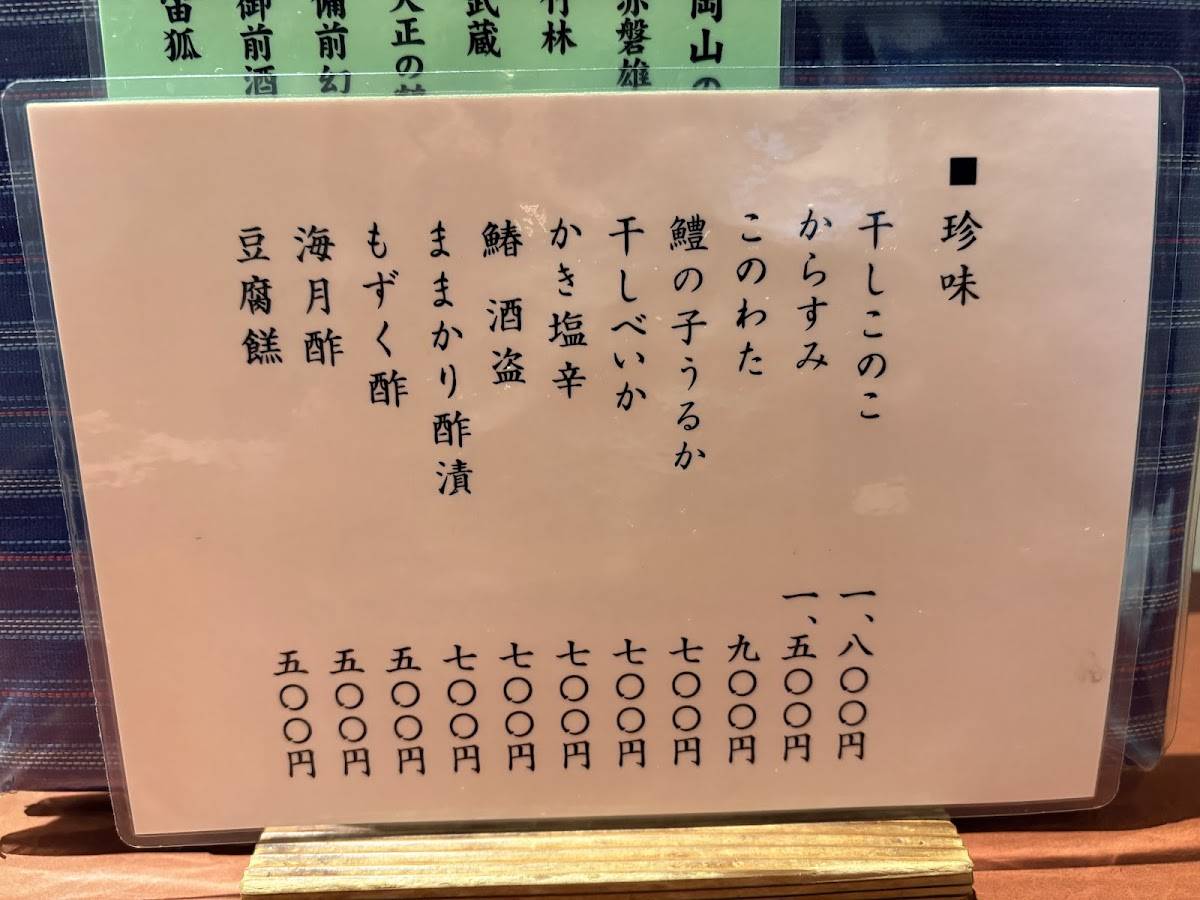 岡山の
赤磐雄
竹林
武蔵
大正の
備前幻
御前酒
■ 珍味
干しこのこ 一、八〇〇円
からすみ 一、五〇〇円
このわた 九〇〇円
鱧の子うるか 七〇〇円
干しべいか 七〇〇円
かき塩辛 七〇〇円
鰆 酒盗 七〇〇円
ままかり酢漬 七〇〇円
もずく酢 五〇〇円
海月酢 五〇〇円
豆腐餻 五〇〇円